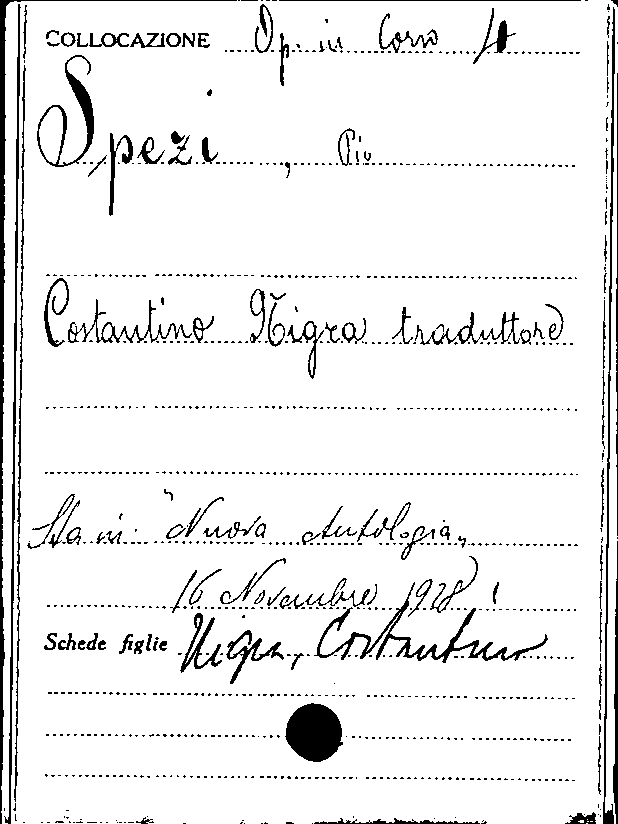 COLLOCAZIONE Op. in Corso 4
Spezi, Pio
Costantino Nigra traduttore
Sta in: "Nuova Antologia„
16 Novembre 1928
Schede figlie Nigra, Costantino